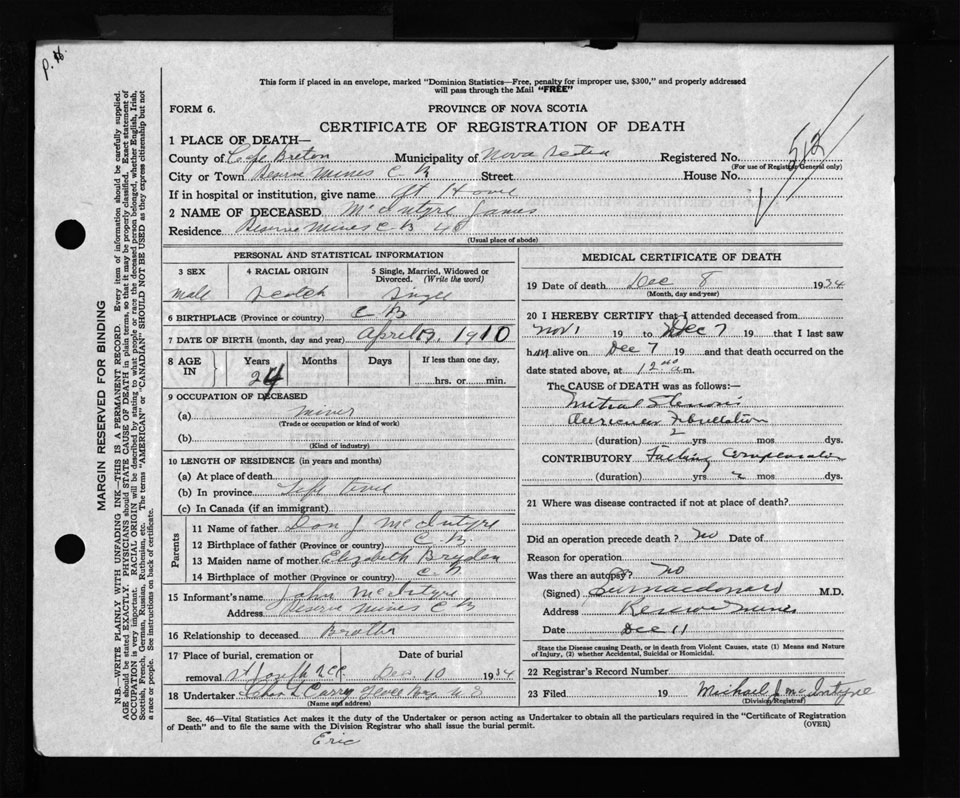 P. H.
This form if placed in an envelope, marked "Dominion Statistics—Free, penalty for improper use, $300," and properly addressed
will pass through the Mail "FREE"
FORM 6.
PROVINCE OF NOVA SCOTIA
CERTIFICATE OF REGISTRATION OF DEATH
512
1 PLACE OF DEATH—
County of Cape Breton Municipality of Nova Scotia Registered No.
(For use of Registrar General only)
City or Town Reserve Mines C B Street House No.
If in hospital or institution, give name At Home
2 NAME OF DECEASED McIntyre James
Residence Reserve Mines C. B.
(Usual place of abode)
PERSONAL AND STATISTICAL INFORMATION
3 SEX 4 RACIAL ORIGIN 5 Single, Married, Widowed or Divorced. (Write the word)
male Scotch Single
6 BIRTHPLACE (Province or country) C B
7 DATE OF BIRTH (month, day and year) April 19, 1910
8 AGE IN Years Months Days If less than one day,
24 hrs. or min.
9 OCCUPATION OF DECEASED
(a) miner
(Trade or occupation or kind of work)
(b)
(Kind of industry)
10 LENGTH OF RESIDENCE (in years and months)
(a) At place of death
(b) In province Life time
(c) In Canada (if an immigrant)
Parents
11 Name of father Don J McIntyre
12 Birthplace of father (Province or country) C. B.
13 Maiden name of mother Elizabeth Bryden
14 Birthplace of mother (Province or country) C B
15 Informant's name John McIntyre
Address Reserve Mines C B
16 Relationship to deceased Brother
17 Place of burial, cremation or Date of burial
removal St Joseph Dec 10 1934
18 Undertaker Chas L Curry Glace Bay N S
(Name and address)
MEDICAL CERTIFICATE OF DEATH
19 Date of death Dec 8 1934
(Month, day and year)
20 I HEREBY CERTIFY that I attended deceased from
Nov 1 19 to Dec 7 19 that I last saw
him alive on Dec 7 19 and that death occurred on the
date stated above, at 12 00 a m.
The CAUSE of DEATH was as follows:—
Mitral Stenosis
Auricular Fibrillation
(duration) 2 yrs mos dys.
CONTRIBUTORY Failing Compensation
(duration) yrs 2 mos dys.
21 Where was disease contracted if not at place of death?
Did an operation precede death? no Date of
Reason for operation
Was there an autopsy? no
(Signed) M.D.
Address Reserve Mines
Date Dec 11
State the Disease causing Death, or in death from Violent Causes, state (1) Means and Nature
of Injury, (2) whether Accidental, Suicidal or Homicidal.
22 Registrar's Record Number
23 Filed 19 Michael J. McIntyre
(Division Registrar)
Sec. 46—Vital Statistics Act makes it the duty of the Undertaker or person acting as Undertaker to obtain all the particulars required in the "Certificate of Registration
of Death" and to file the same with the Division Registrar who shall issue the burial permit. (OVER)
Eric
MARGIN RESERVED FOR BINDING
N.B.—WRITE PLAINLY WITH UNFADING INK—THIS IS A PERMANENT RECORD. Every item of information should be carefully supplied.
AGE should be stated EXACTLY. PHYSICIANS should STATE CAUSE OF DEATH in plain terms, so that it may be properly classified. Exact statement of
OCCUPATION is very important. RACIAL ORIGIN will be described by stating to what people or race the deceased person belonged, whether English, Irish,
Scottish, French, German, Russian, Ruthenian, etc. The terms "AMERICAN" or "CANADIAN" SHOULD NOT BE USED as they express citizenship but not
a race or people. See instructions on back of certificate.